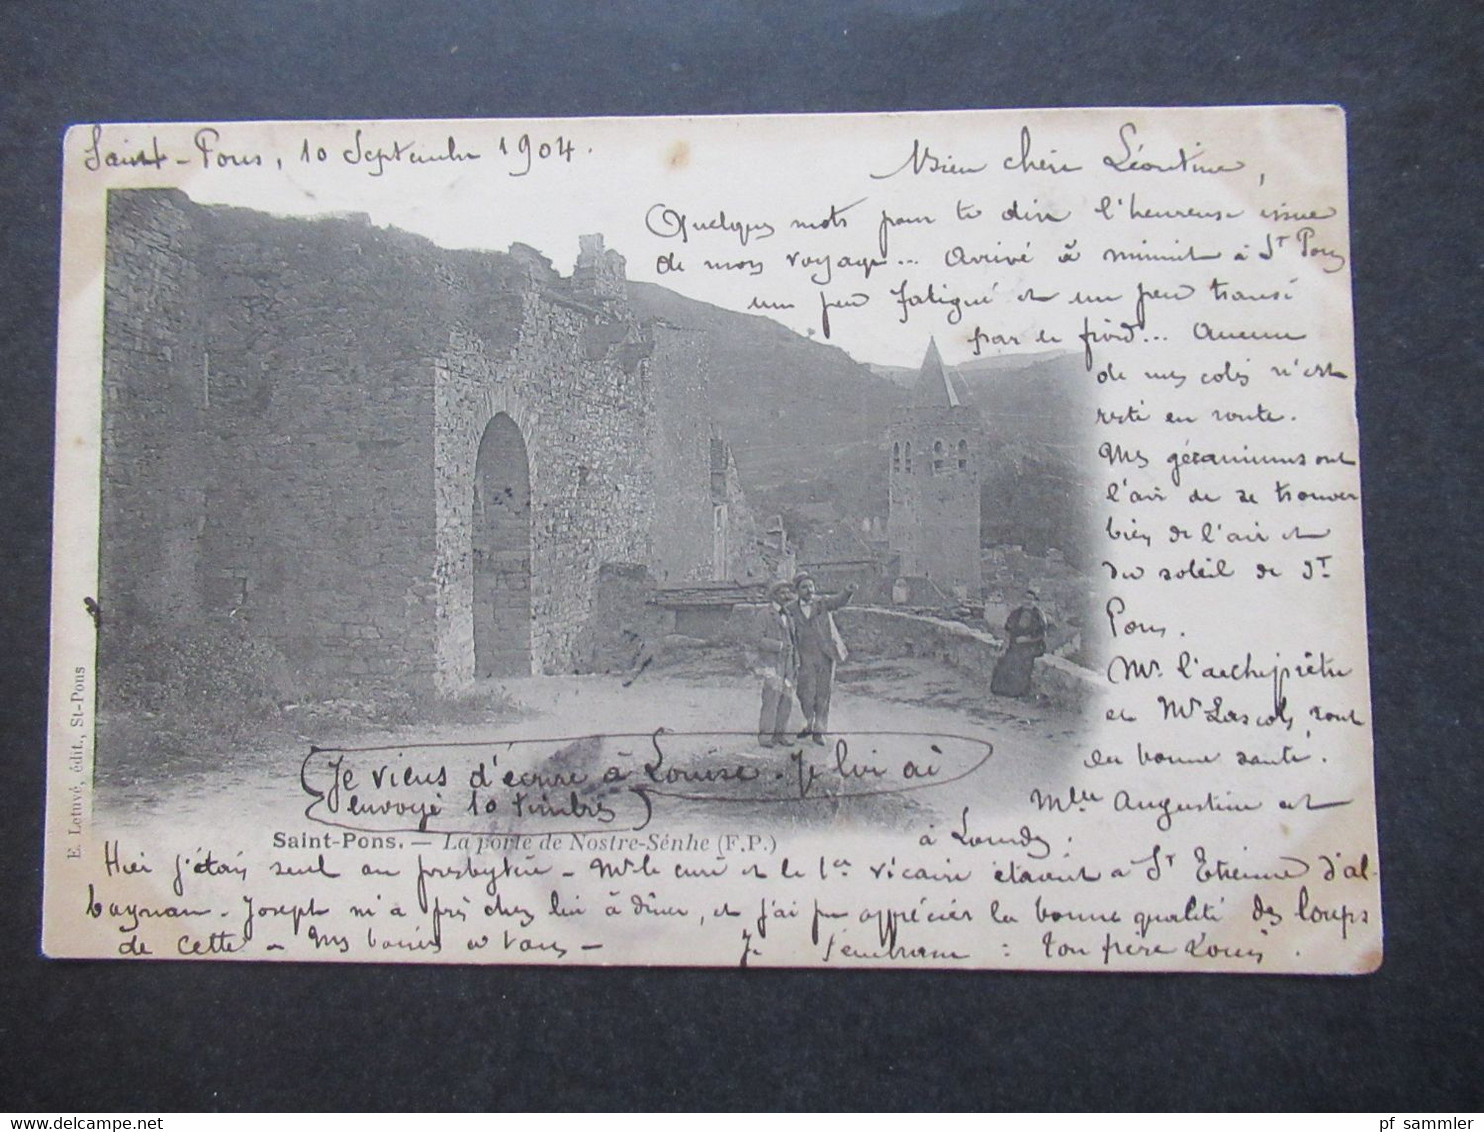 Saint-Pons, 10 Septembre 1904.
Bien chère Léontine,
Quelques mots pour te dire l'heureuse issue
de mon voyage... Arrivé à minuit à St Pons
un peu fatigué et un peu transi
par le froid... Aucun
de mes colis n'est
resté en route.
Mes géraniums ont
l'air de se trouver
bien de l'air et
du soleil de St
Pons.
Mr l'archiprêtre
et Mr Lascols sont
en bonne santé.
Mlle Augustine est
à Lourdes.
(Je viens d'écrire à Louise. Je lui ai
envoyé 10 timbres)
E. Letuvé, édit., St-Pons
Saint-Pons. — La porte de Nostre-Sénhe (F.P.)
Hier j'étais seul au presbytère - Mr le curé et le 1er vicaire étaient à St Etienne d'al-
bagnan. Joseph m'a pris chez lui à dîner, et j'ai pu apprécier la bonne qualité des loups
de Cette - Mes
Je t'embrasse : ton frère Louis.
pf_sammler